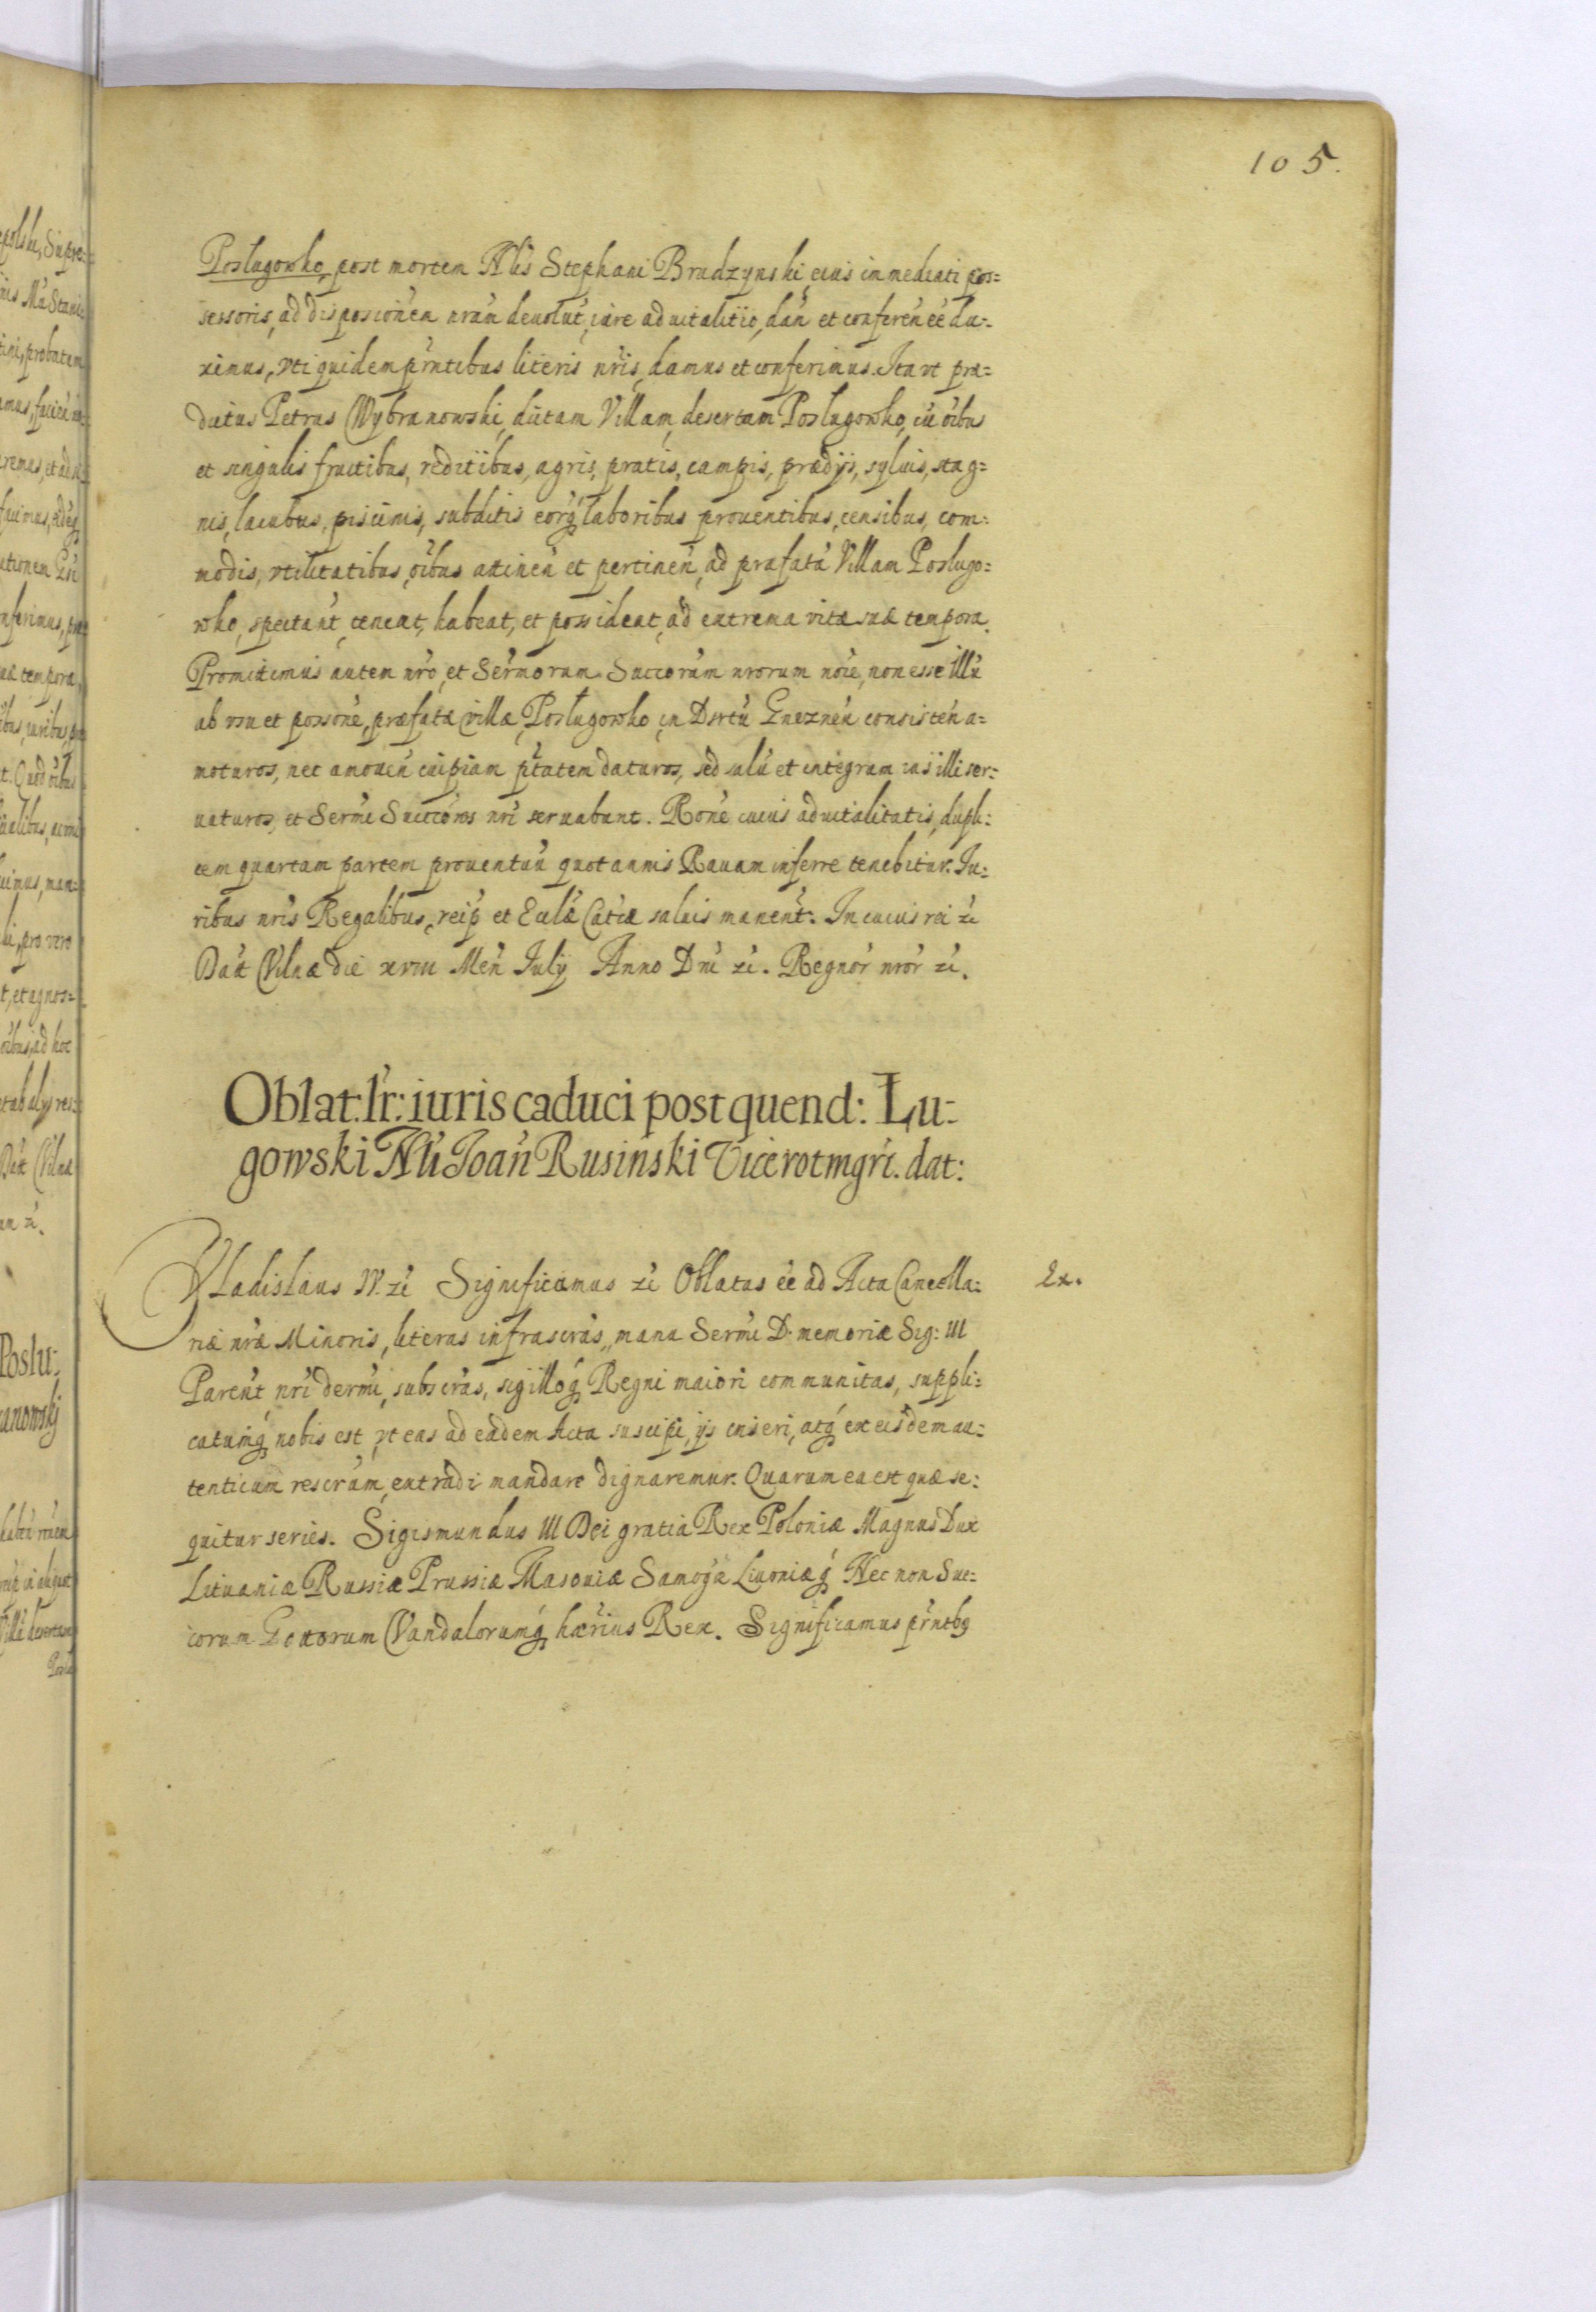 105.
Poslugowko, post mortem Nlis Stephani Brudzynski, eius immediati pos=
sessoris, ad disposionem nram deuolut, iure aduitalitio, dan et conferen ee du=
ximus, vti quidem prntibus literis nris, damus et conferimus. Ita vt præ=
dictus Petrus Wybranowski, dictam Villam, desertam Poslugowko, cu oibus
et singulis fructibus, reditibus, agris, pratis, campis, prædijs, syluis, stag=
nis, lacubus, piscinis, subditis eorq laboribus prouentibus, censibus, com=
modis, vtilitatibus, oibus attinen et pertinen, ad præfata Villam Poslugo=
wko, spectant, teneat, habeat, et possideat, ad extrema vitæ suæ tempora.
Promittimus autem nro, et Sermorum Succorum nrorum noie, non esse illu
ab vsu et possone, præfatæ villæ, Posługowko, in Dsrtu Gneznen consisten a=
moturos, nec amouen cuipiam ptatem daturos, sed saluu et integrum ius illi ser=
uaturos, et Sermi Succores nri seruabunt. Rone cuius aduitalitatis, dupli=
cem quartam partem prouentuu quotannis Rauam inferre tenebitur. Iu=
ribus nris Regalibus, reip et Ecclæ Catcæ saluis manent. In cuius rei zc
Dat Vilnæ die xviii Men July Anno Dni zc. Regnor nror zc.
Oblat: lr: iuris caduci post quend: Lu=
gowski Nli Joan Rusinski Vicerotmgri. dat:
Vladislaus IV. zc Significamus zc Oblatas ee ad Acta Cancella=
riæ nræ Minoris, literas infrascras, manu Sermi D. memoriæ Sig: III
Ex.
Parent nri dermi, subscras, sigilloq Regni maiori communitas, suppli=
catumq nobis est, vt eas ad eadem Acta suscipi, ijs inseri, atq ex eisdem au=
tenticum rescrum, extradi mandare dignaremur. Quarum ea est quæ se=
quitur series. Sigismundus III Dei gratia Rex Poloniæ Magnus Dux
Lituaniæ Russiæ Prussiæ Masouiæ Samogæ Liuoniæq Nec non Sue=
corum Gottorum Vandalorumq hærius Rex. Significamus prntbq